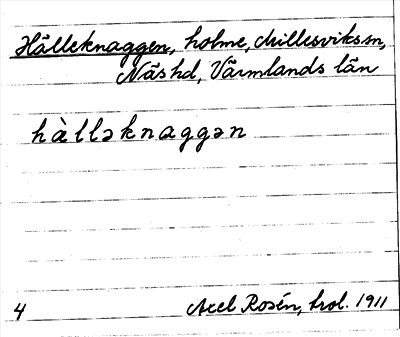 Hälleknaggen, holme, Millesvikssn,
Näs hd, Värmlands län
hàlləknaggən
4 Axel Rosén, trol. 1911